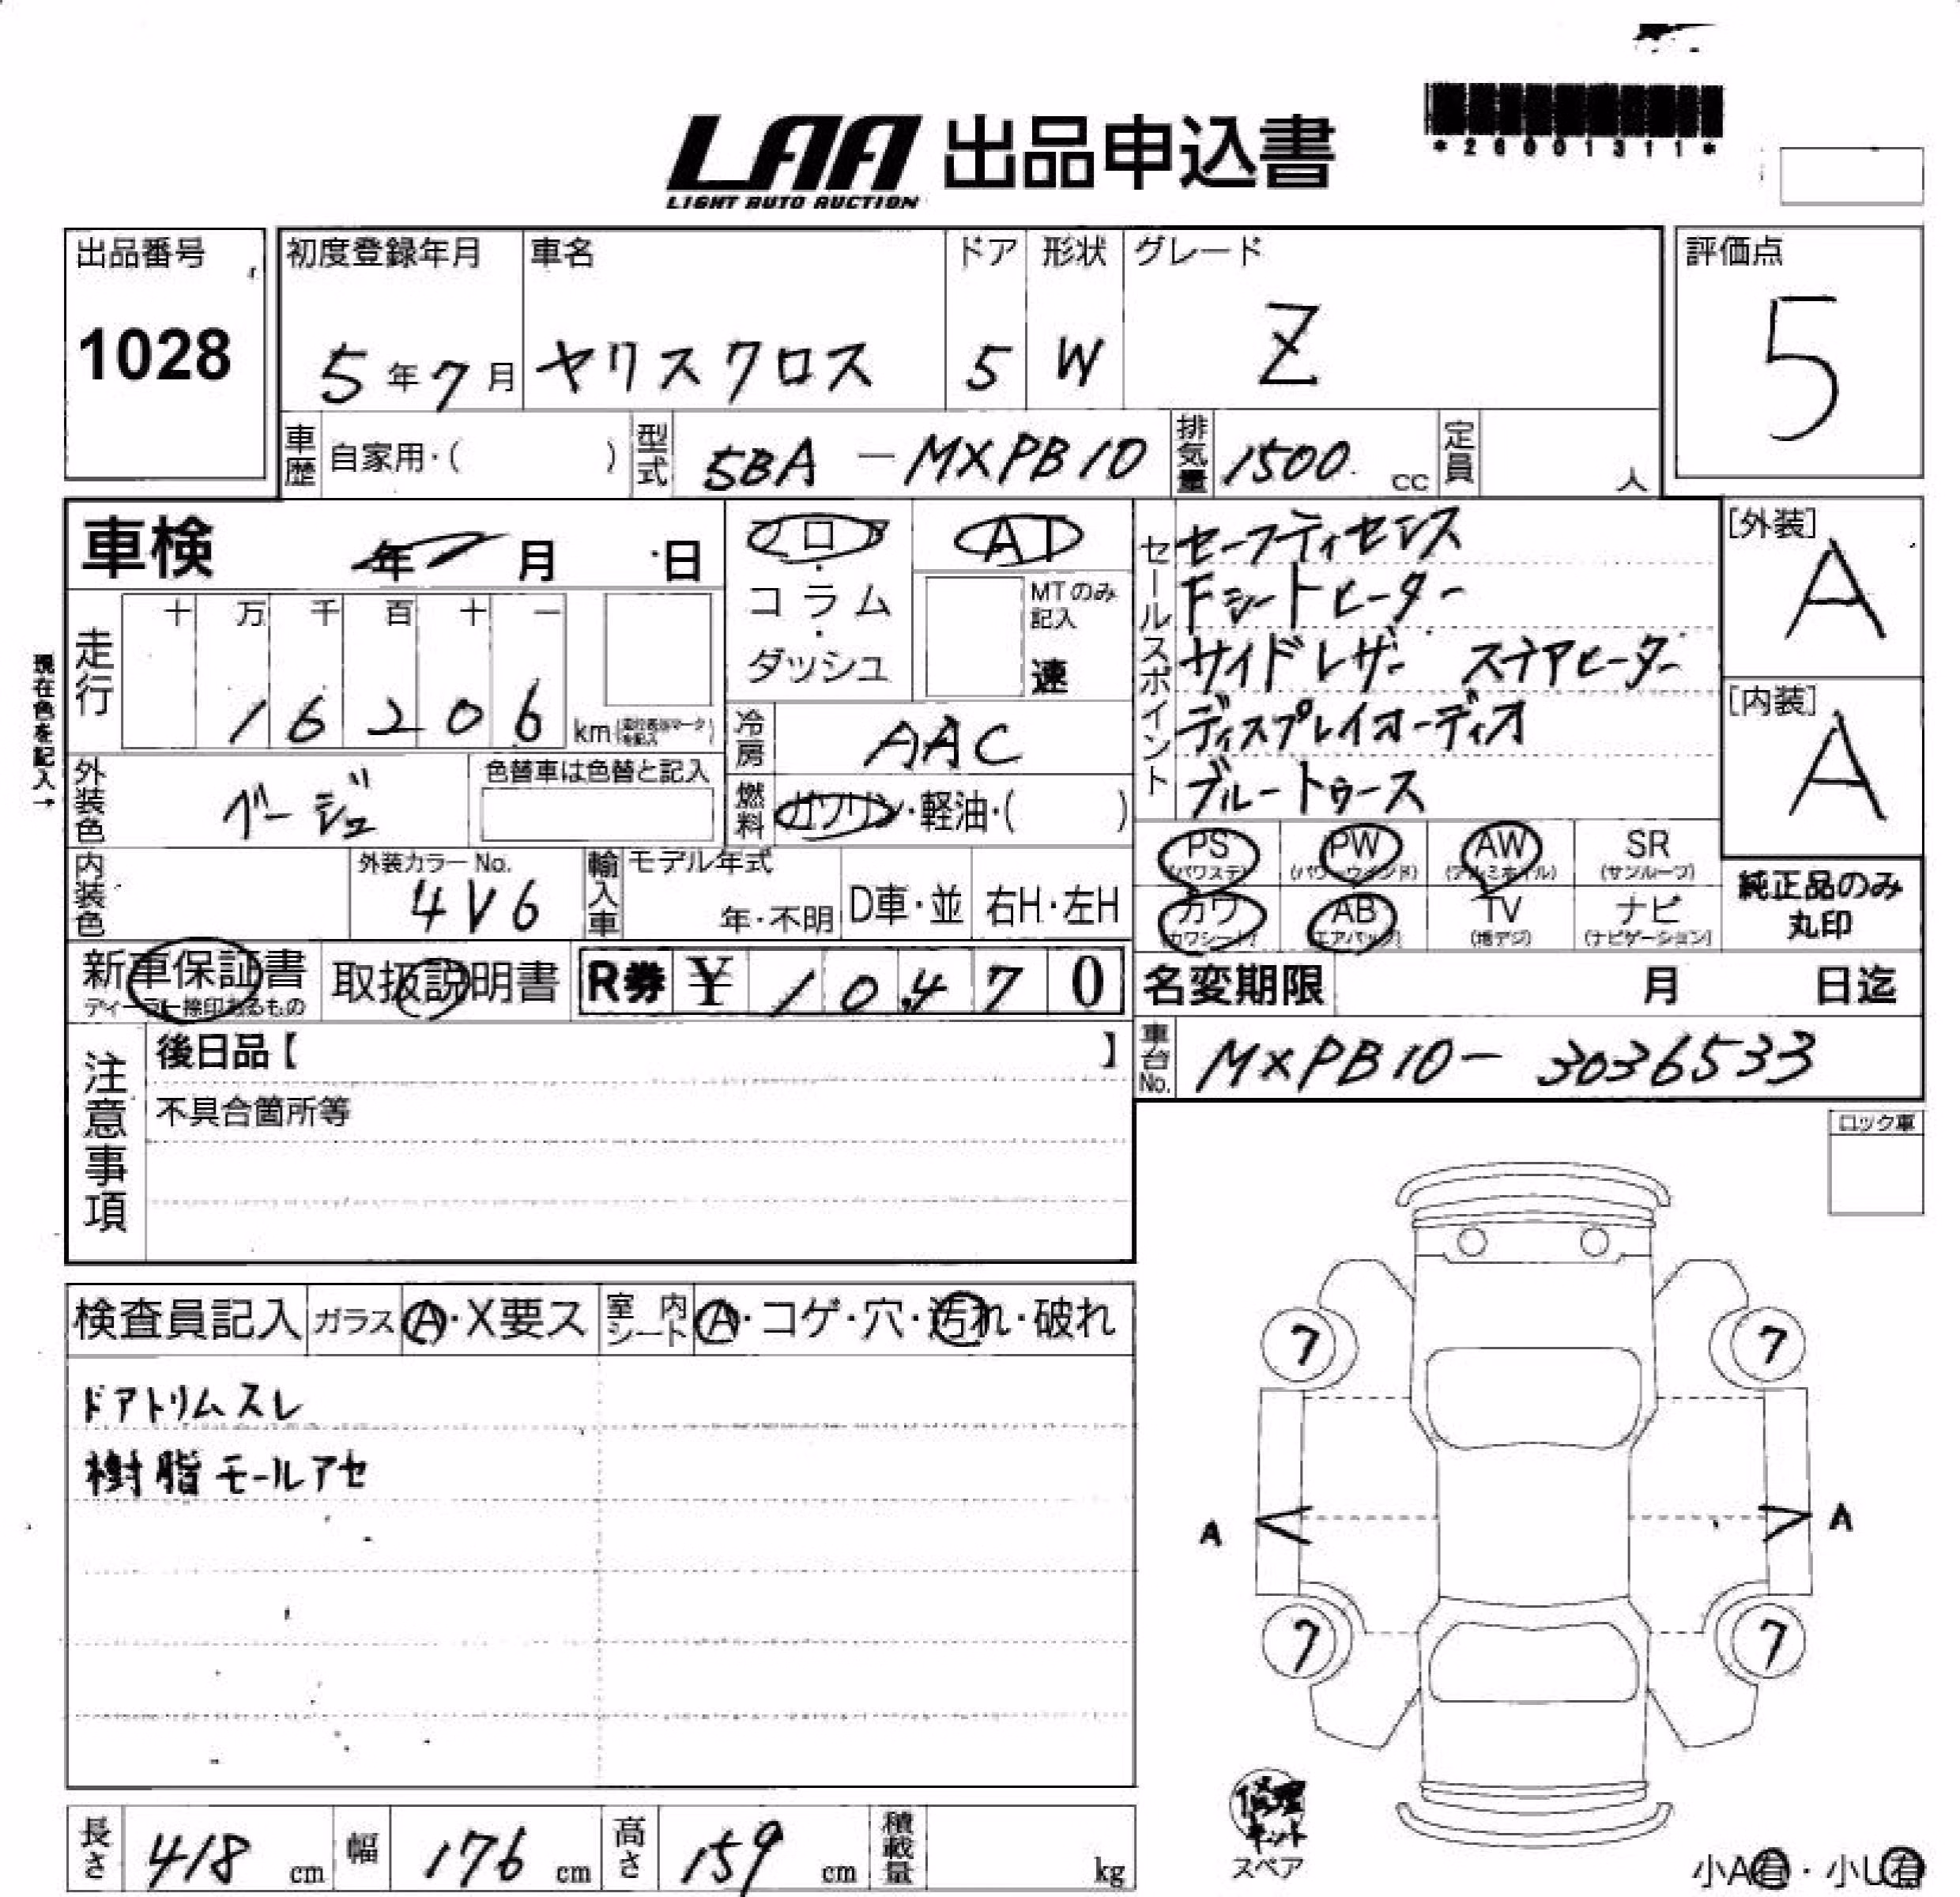 *26001311*
LAA 出品申込書
LIGHT AUTO AUCTION
出品番号
1028
初度登録年月
5年7月
車名
ヤリスクロス
ドア
5
形状
W
グレード
Z
評価点
5
車歴 自家用・( )
型式 5BA-MXPB10
排気量 1500 cc
定員 人
車検 年 月 日
フロア
コラム
ダッシュ
AT
MTのみ
記入
速
セールスポイント
セーフティセンス
Fシートヒーター
サイドレザー ステアヒーター
ディスプレイオーディオ
ブルートゥース
[外装]
A
[内装]
A
現在色を記入→
走行
十 万 千 百 十 一
1 6 2 0 6 km
冷房 AAC
外装色 ベージュ
色替車は色替と記入
燃料 ガソリン・軽油・( )
内装色
外装カラーNo.
4V6
輸入車
モデル年式
年・不明
D車・並
右H・左H
PS
(パワステ)
PW
(パワーウインド)
AW
(アルミホイル)
SR
(サンルーフ)
カワ
(カワシート)
AB
(エアバック)
TV
(地デジ)
ナビ
(ナビゲーション)
純正品のみ
丸印
新車保証書
ディーラー捺印あるもの
取扱説明書
R券 ¥ 10,470
名変期限 月 日迄
車台No. MXPB10-3036533
注意事項
後日品【 】
不具合箇所等
ロック車
検査員記入 ガラス A・X要ス 室内シート A・コゲ・穴・汚れ・破れ
ドアトリムスレ
樹脂モールアセ
7 7
A A
7 7
修理
キット
スペア
長さ 418 cm 幅 176 cm 高さ 159 cm 積載量 kg
小A有・小U有